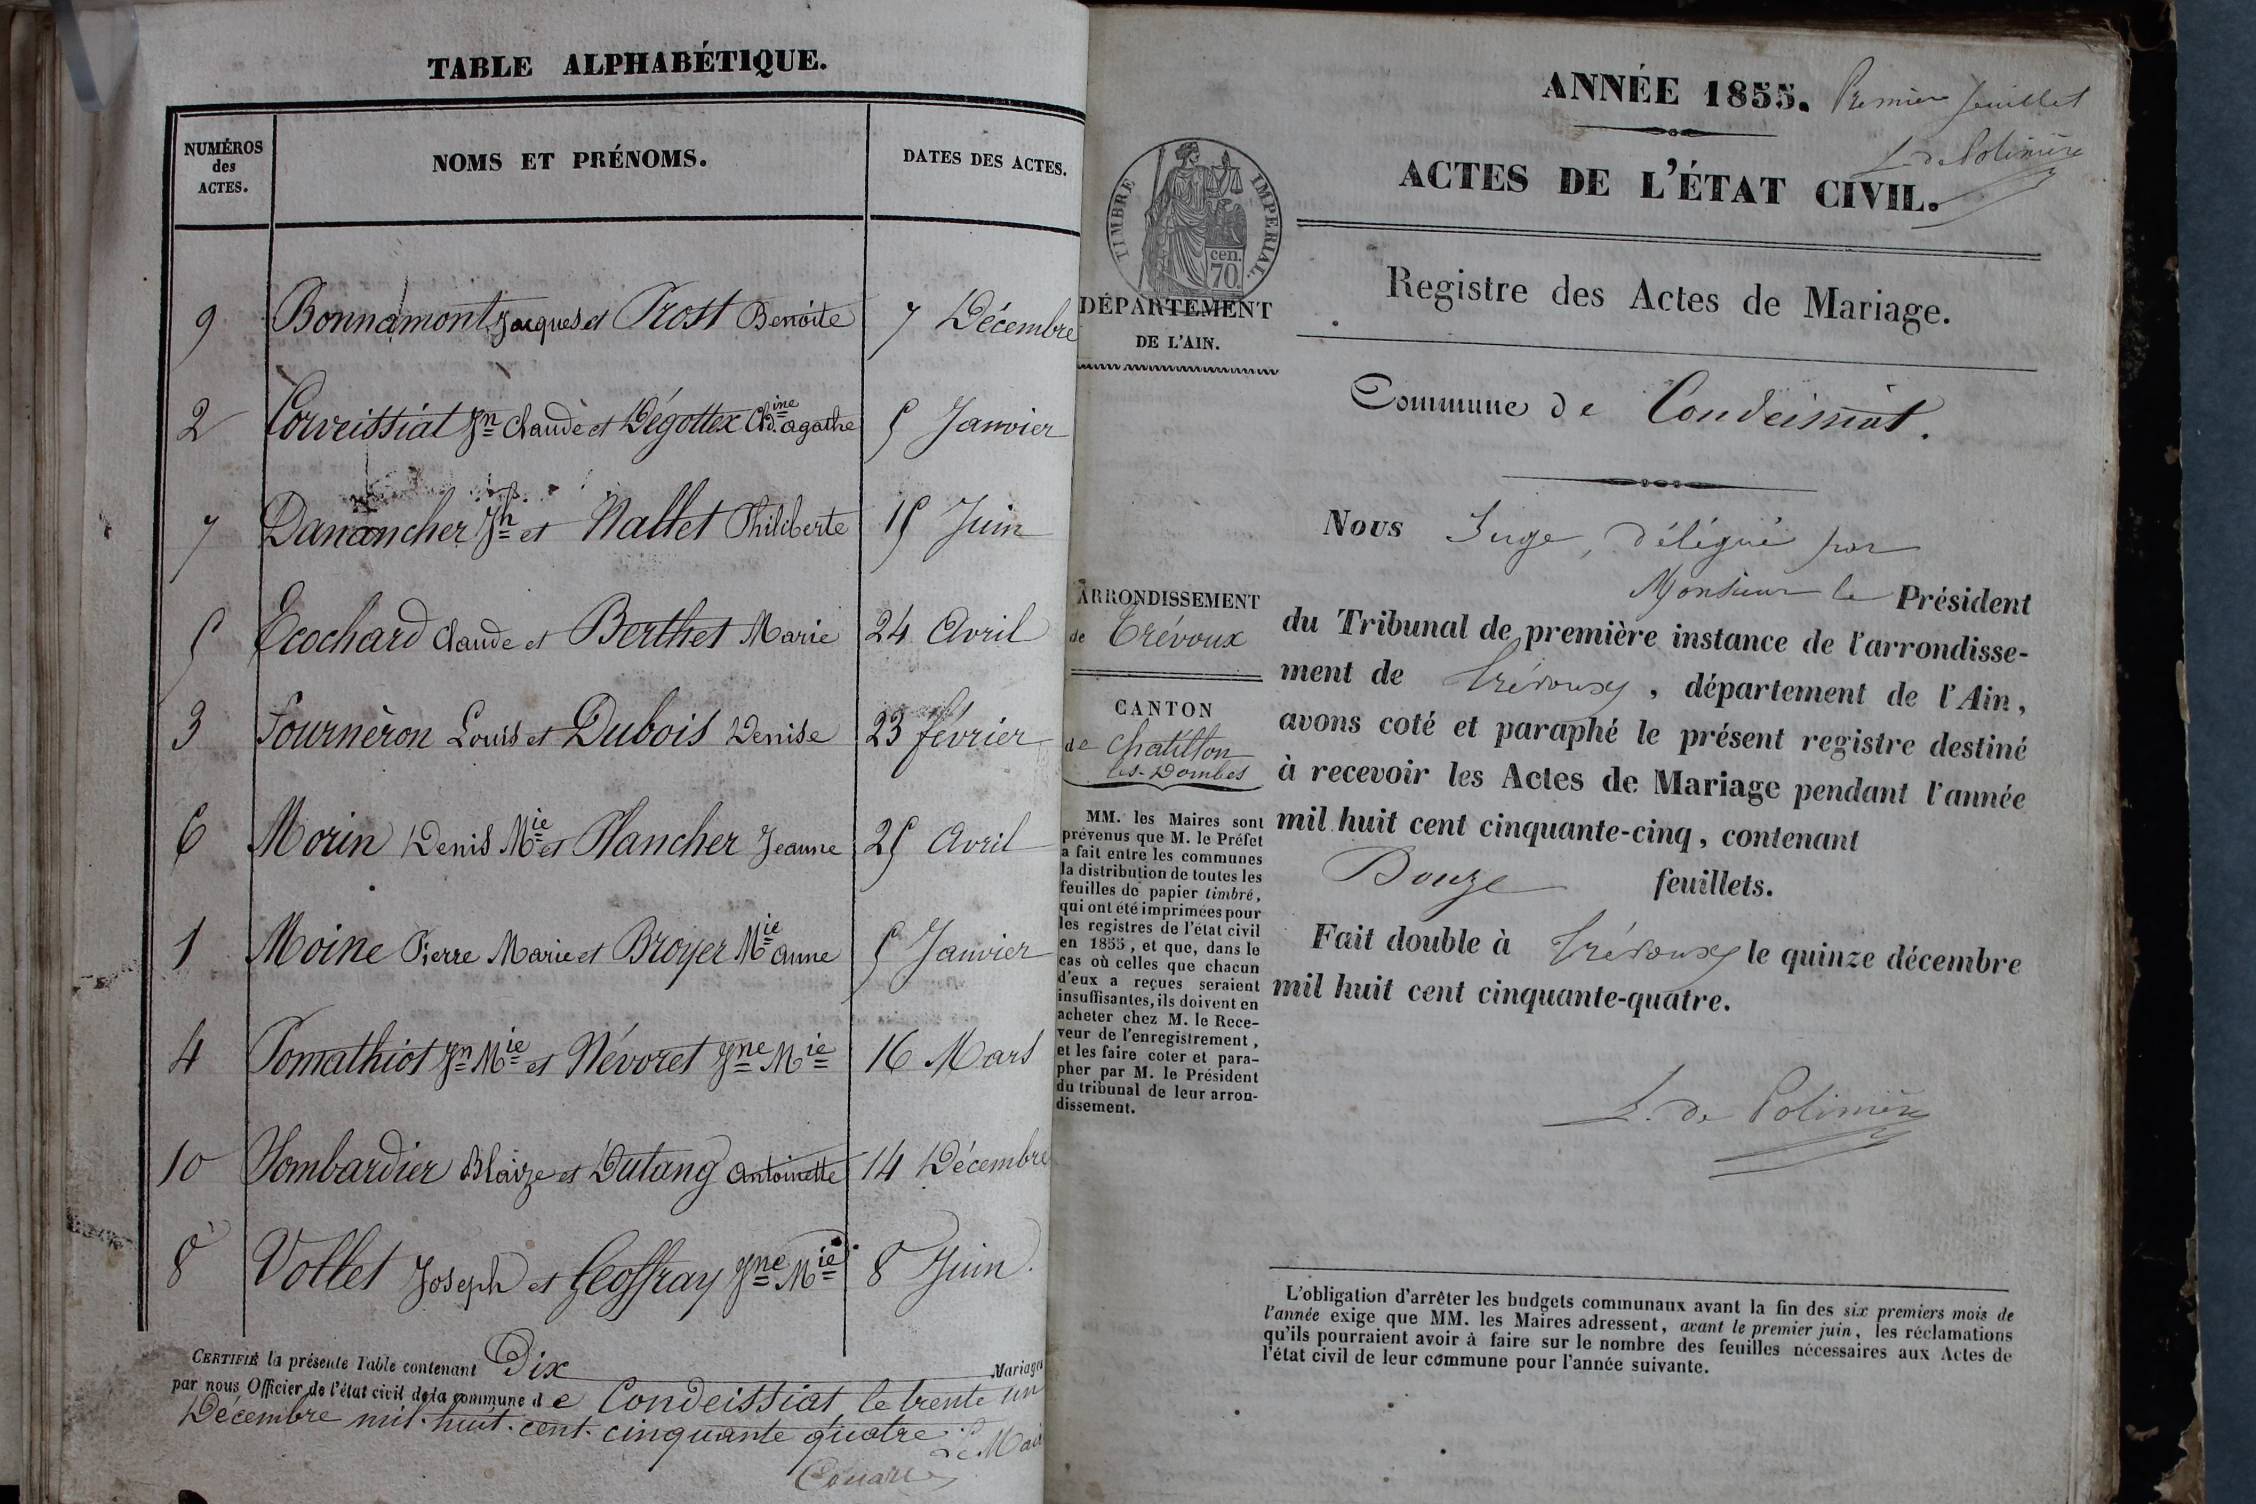 TABLE ALPHABÉTIQUE.
NUMÉROS des ACTES. NOMS ET PRÉNOMS. DATES DES ACTES.
9 Bonnamont Jacques et Prost Benoite 7 Décembre
2 Corveissiat Jn Claude et Dégottex Cdine agathe 5 Janvier
7 Danancher Jh et Nallet Philiberte 15 Juin
5 Ecochard Claude et Berthet Marie 24 Avril
3 Fournèron Louis et Dubois Denise 23 février
6 Morin Denis Mie et Plancher Jeanne 25 Avril
1 Moine Pierre Marie et Broyer Mie anne 5 Janvier
4 Pomathiot Jn Mie et Névoret Jne Mie 16 Mars
10 Blaize et Dutang Antoinette 14 Décembre
8 Vollet Joseph et Geoffray Jne Mie 8 Juin.
CERTIFIÉ la présente Table contenant Dix Mariages
par nous Officier de l'état civil de la commune de Condeissiat, le trente un
Décembre mil. huit. cent. cinquante quatre.
Le Mair
ANNÉE 1855. Premier feuillet
L. de Polinière
ACTES DE L'ÉTAT CIVIL.
TIMBRE IMPERIAL.
cen.
70
DÉPARTEMENT
DE L'AIN.
Registre des Actes de Mariage.
Commune de Condeissiat.
ARRONDISSEMENT
de Trévoux
CANTON
de Chatillon
les-Dombes
MM. les Maires sont
prévenus que M. le Préfet
a fait entre les communes
la distribution de toutes les
feuilles de papier timbré,
qui ont été imprimées pour
les registres de l'état civil
en 1855, et que, dans le
cas où celles que chacun
d'eux a reçues seraient
insuffisantes, ils doivent en
acheter chez M. le Rece-
veur de l'enregistrement,
et les faire coter et para-
pher par M. le Président
du tribunal de leur arron-
dissement.
Nous Juge, délégué par
Monsieur le Président
du Tribunal de première instance de l'arrondisse-
ment de Trévoux, département de l'Ain,
avons coté et paraphé le présent registre destiné
à recevoir les Actes de Mariage pendant l'année
mil huit cent cinquante-cinq, contenant
Douze feuillets.
Fait double à Trévoux le quinze décembre
mil huit cent cinquante-quatre.
L. de Polinière
L'obligation d'arrêter les budgets communaux avant la fin des six premiers mois de
l'année exige que MM. les Maires adressent, avant le premier juin, les réclamations
qu'ils pourraient avoir à faire sur le nombre des feuilles nécessaires aux Actes de
l'état civil de leur commune pour l'année suivante.